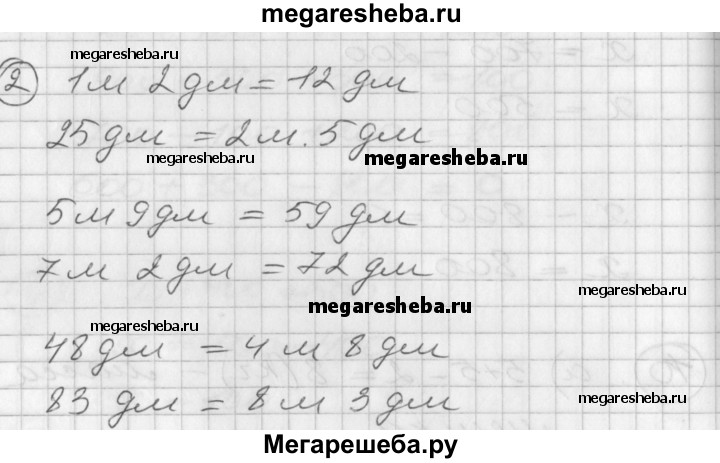 megaresheba.ru
megaresheba.ru
2 1м 2дм = 12 дм
25дм = 2м. 5дм
megaresheba.ru
megaresheba.ru
5м 9дм = 59 дм
7м 2дм = 72 дм
megaresheba.ru
megaresheba.ru
megaresheba.ru
48дм = 4м 8дм
83 дм = 8м 3дм
megaresheba.ru
Мегарешеба.ру